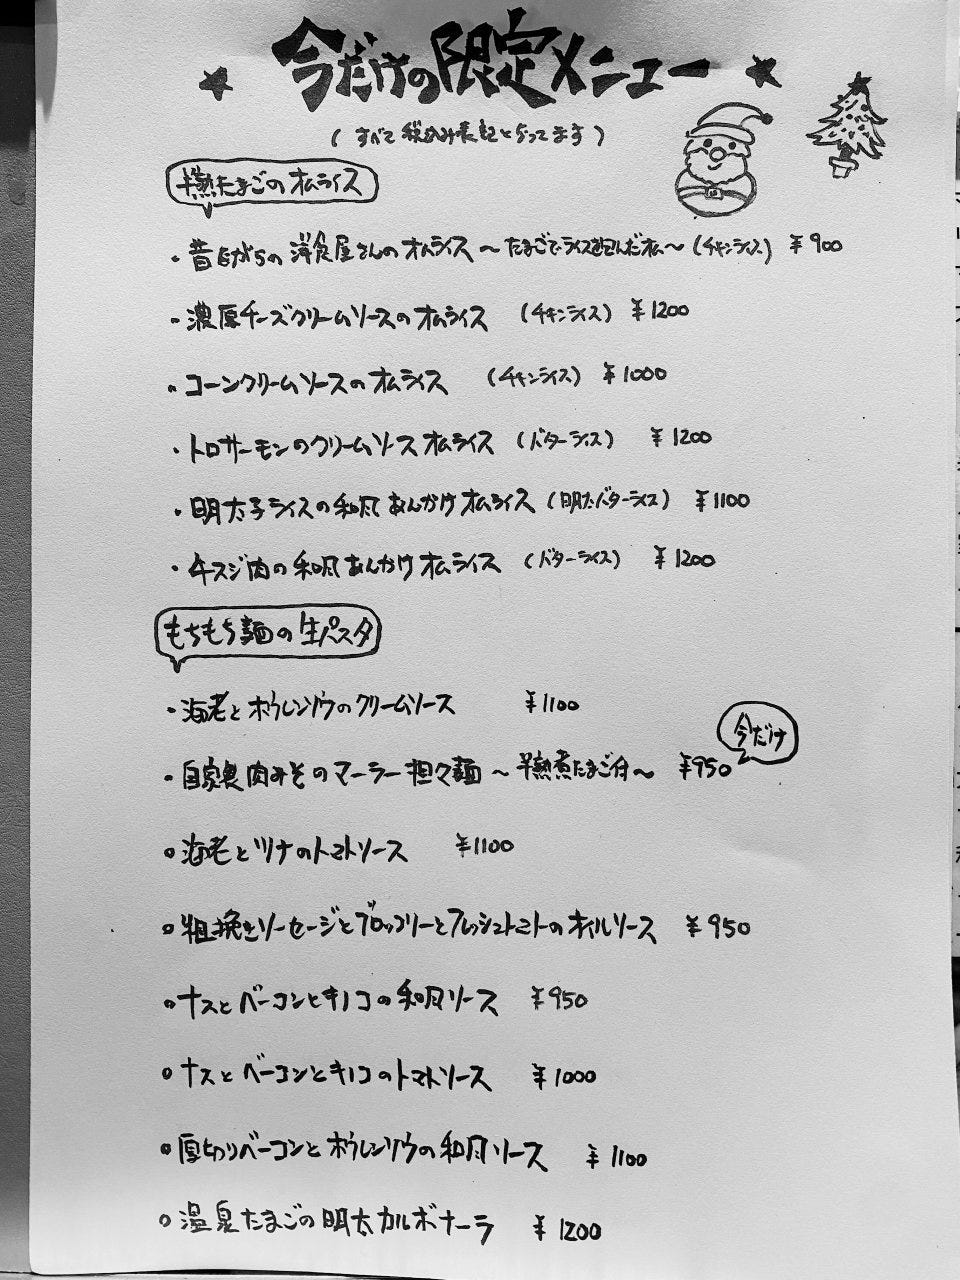 今だけの限定メニュー
(すべて税込み表記となってます)
半熟たまごのオムライス
・昔ながらの洋食屋さんのオムライス〜たまごでライスを包んだオム〜(チキンライス) ¥900
・濃厚チーズクリームソースのオムライス (チキンライス) ¥1200
・コーンクリームソースのオムライス (チキンライス) ¥1000
・トロサーモンのクリームソースオムライス (バターライス) ¥1200
・明太子ライスの和風あんかけオムライス (明太バターライス) ¥1100
・牛スジ肉の和風あんかけオムライス (バターライス) ¥1200
もちもち麺の生パスタ
・海老とホウレンソウのクリームソース ¥1100
今だけ
・自家製肉みそのマーラー担々麺〜半熟煮たまご付〜 ¥950
・海老とツナのトマトソース ¥1100
・粗挽きソーセージとブロッコリーとフレッシュトマトのオイルソース ¥950
・ナスとベーコンとキノコの和風ソース ¥950
・ナスとベーコンとキノコのトマトソース ¥1000
・厚切りベーコンとホウレンソウの和風ソース ¥1100
・温泉たまごの明太カルボナーラ ¥1200